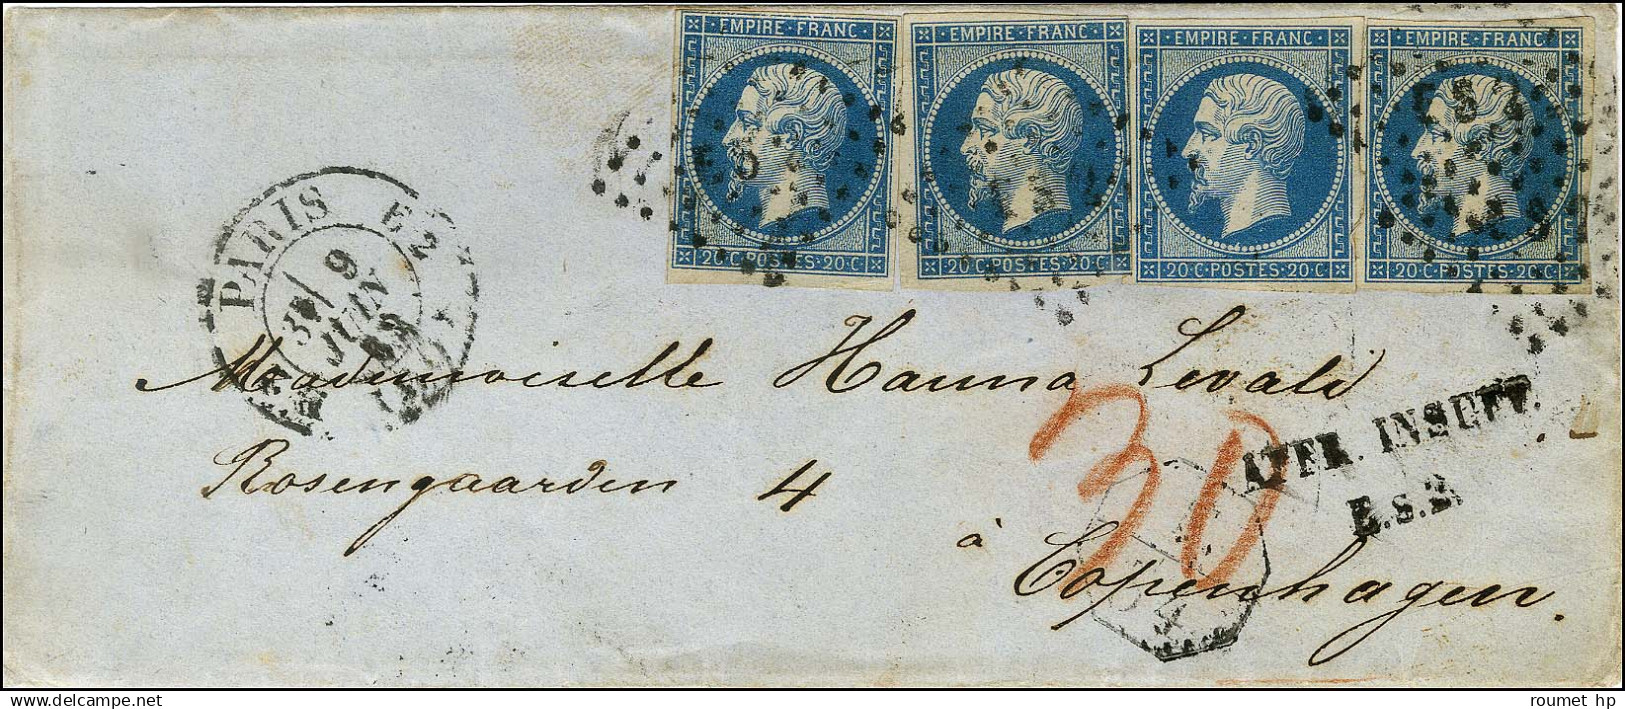 EMPIRE · FRANC · EMPIRE · FRANC · EMPIRE · FRANC · EMPIRE · FRANC
20·C·POSTES·20·C 20·C·POSTES·20·C 20·C·POSTES·20·C 20·C·POSTES·20·C
PARIS
9
JUIN
Mademoiselle Hanna Levald
Rosengaarden 4
à Copenhagen.
30
AFFR. INSUFF.
E.S.2.
roumet hp